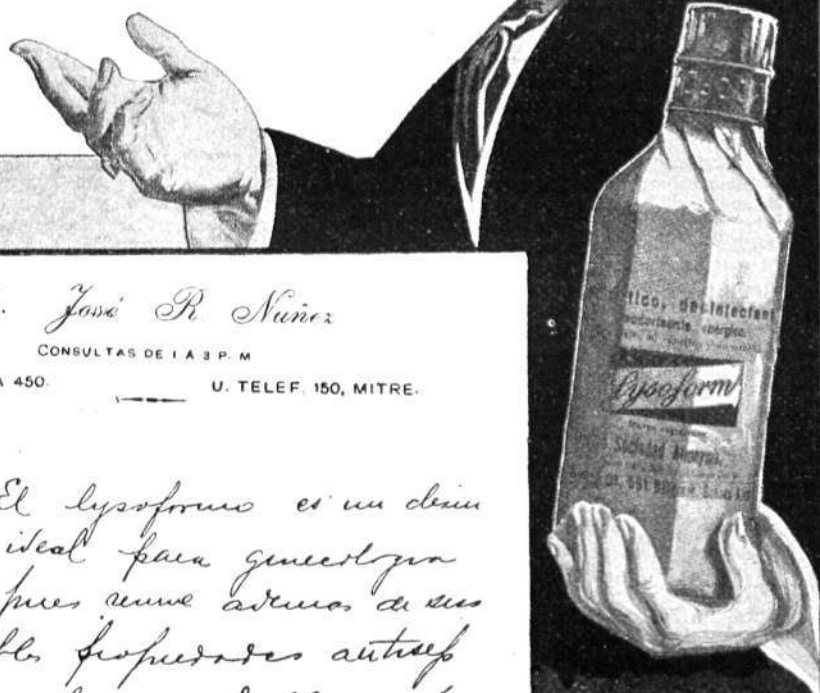 José R. Nuñez
CONSULTAS DE 1 A 3 P. M
450. U. TELEF. 150, MITRE.
El lysoformo es un desin
ideal para ginecologia
pues reune ademas de sus
bles propiedades antisep
tico, desinfectan
lysoform
Sociedad